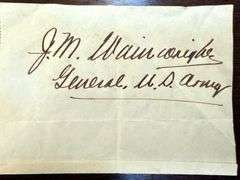 J. M. Wainwright
General, U.S. Army